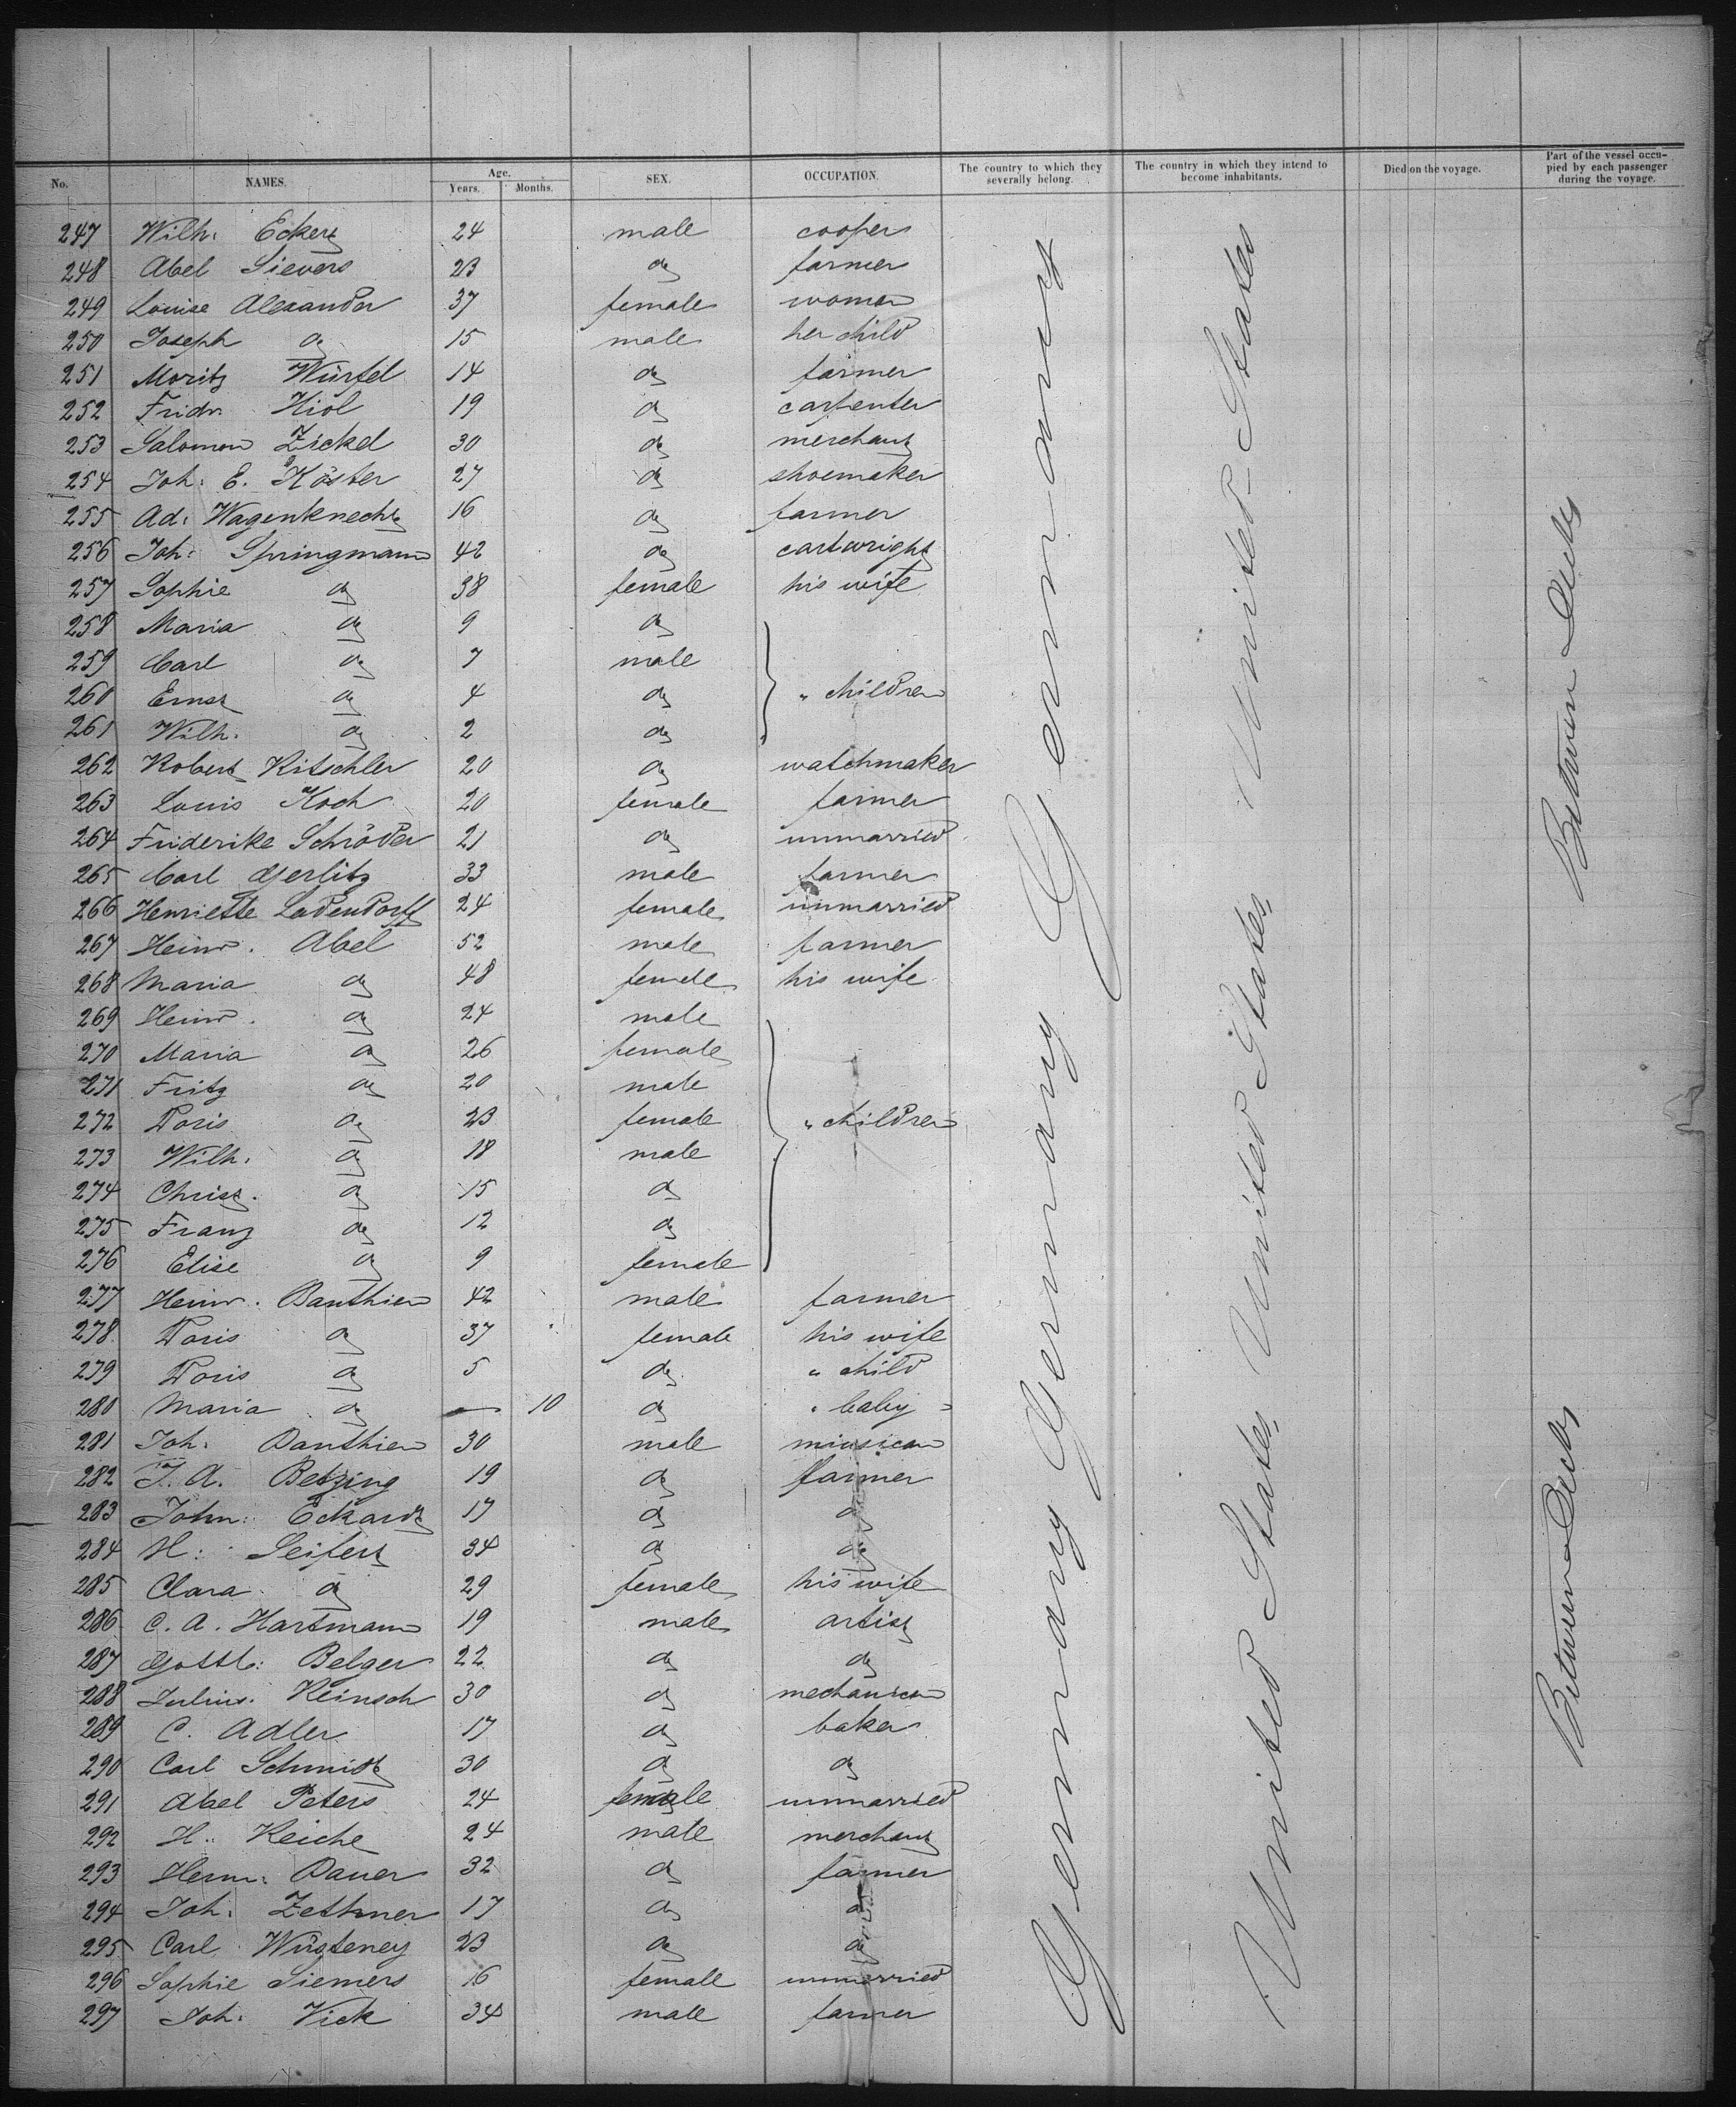 No. NAMES. Age. Years. Months. SEX. OCCUPATION. The country to which they severally belong. The country in which they intend to become inhabitants. Died on the voyage. Part of the vessel occupied by each passenger during the voyage.
247 Wilh. Eckert 24 male cooper
248 Abel Sievers 23 do farmer
249 Louise Alexander 37 female woman
250 Joseph do 15 male her child
251 Moritz Würfel 14 do farmer
252 Fridr. Hiol 19 do carpenter
253 Salomon Zickel 30 do merchant
254 Joh: E. Köster 27 do shoemaker
255 Ad: Wagenknecht 16 do farmer
256 Joh: Springmann 42 do cartwright
257 Sophie do 38 female his wife
258 Maria do 9 do
259 Carl do 7 male
260 Ernst do 4 do " children
261 Wilh. do 2 do
262 Robert Kitschler 20 do watchmaker
263 Louis Koch 20 female farmer
264 Friderike Schröder 21 do unmarried
265 Carl Gerlitz 33 male farmer
266 Henriette Ladendorff 24 female unmarried
267 Heinr. Abel 52 male farmer
268 Maria do 48 female his wife
269 Heinr. do 24 male
270 Maria do 26 female
271 Fritz do 20 male
272 Doris do 23 female " children
273 Wilh. do 18 male
274 Christ. do 15 do
275 Franz do 12 do
276 Elise do 9 female
277 Heinr. Banthien 42 male farmer
278 Doris do 37 female his wife
279 Doris do 5 do " child
280 Maria do — 10 do " baby
281 Joh: Banthien 30 male miusican
282 J. A. Betzing 19 do farmer
283 John: Eckardt 17 do do
284 H: Seifert 34 do do
285 Clara do 29 female his wife
286 C. A. Hartmann 19 male artist
287 Gottl: Belger 22 do do
288 Julius Reinsch 30 do mechanican
289 C. Adler 17 do baker
290 Carl Schmidt 30 do do
291 Abel Peters 24 female unmarried
292 H. Reiche 24 male merchant
293 Herm: Bauer 32 do farmer
294 Joh: Zethner 17 do do
295 Carl Wüsteney 23 do do
296 Sophie Siemers 16 female unmarried
297 Joh: Vick 34 male farmer
Germany Germany Germany
United States United States United-States
Between Decks Between Decks